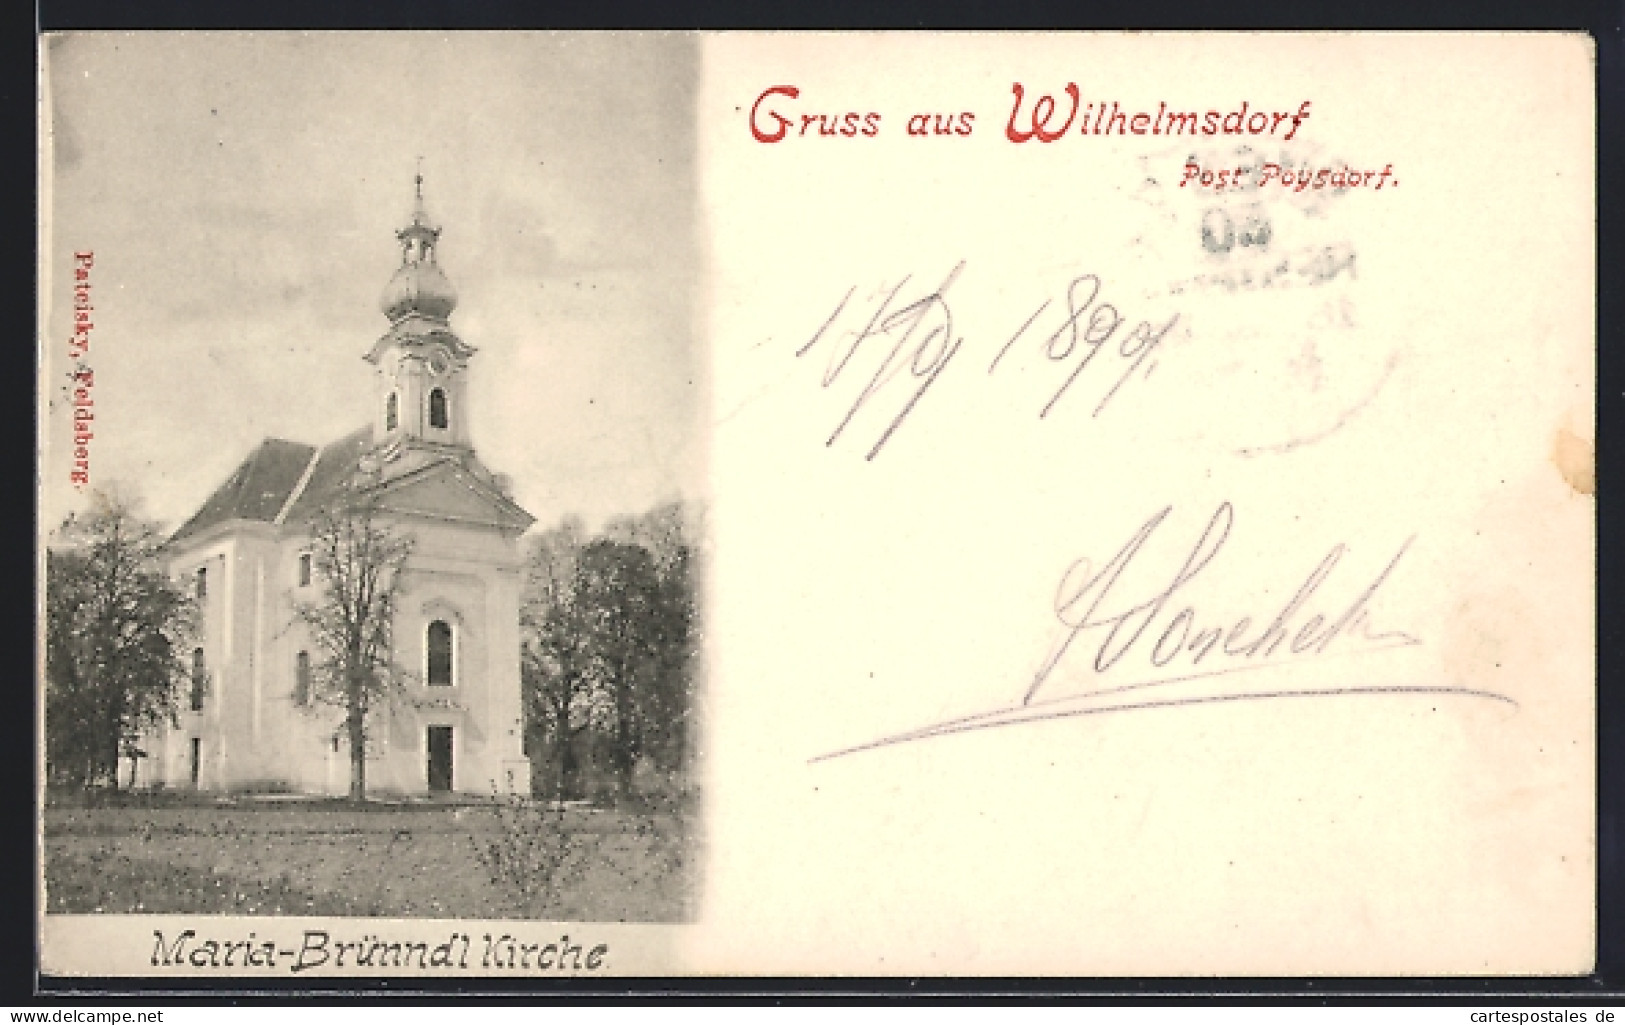 Gruss aus Wilhelmsdorf
Post Poysdorf.
Patcisky, Feldsberg.
17/9 1899.
Maria-Bründl Kirche.
www.delcampe.net
cartespostales_de